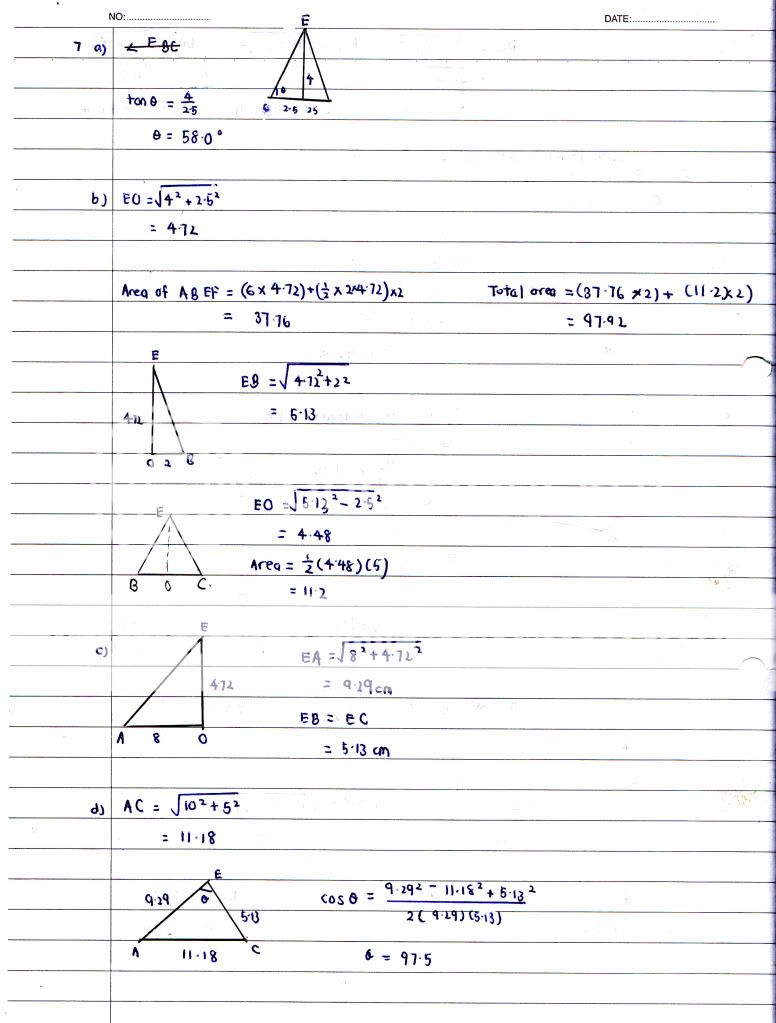 NO:
DATE:
7 a) ∠ EBC
E
4
θ
2.5 2.5
tan θ = 4/2.5
θ = 58.0°
b) EO = √4² + 2.5²
= 4.72
Area of ABEF = (6 × 4.72) + (½ × 2×4.72) × 2
= 37.76
Total area = (37.76 × 2) + (11.2 × 2)
= 97.92
E
4.72
O 2 B
EB = √4.72² + 2²
= 5.13
E
B O C
EO = √5.13² - 2.5²
= 4.48
Area = ½ (4.48)(5)
= 11.2
c) E
472
A 8 O
EA = √8² + 4.72²
= 9.29 cm
EB = EC
= 5.13 cm
d) AC = √10² + 5²
= 11.18
E
9.29 θ 5.13
A 11.18 C
cos θ = 9.29² - 11.18² + 5.13² / 2(9.29)(5.13)
θ = 97.5